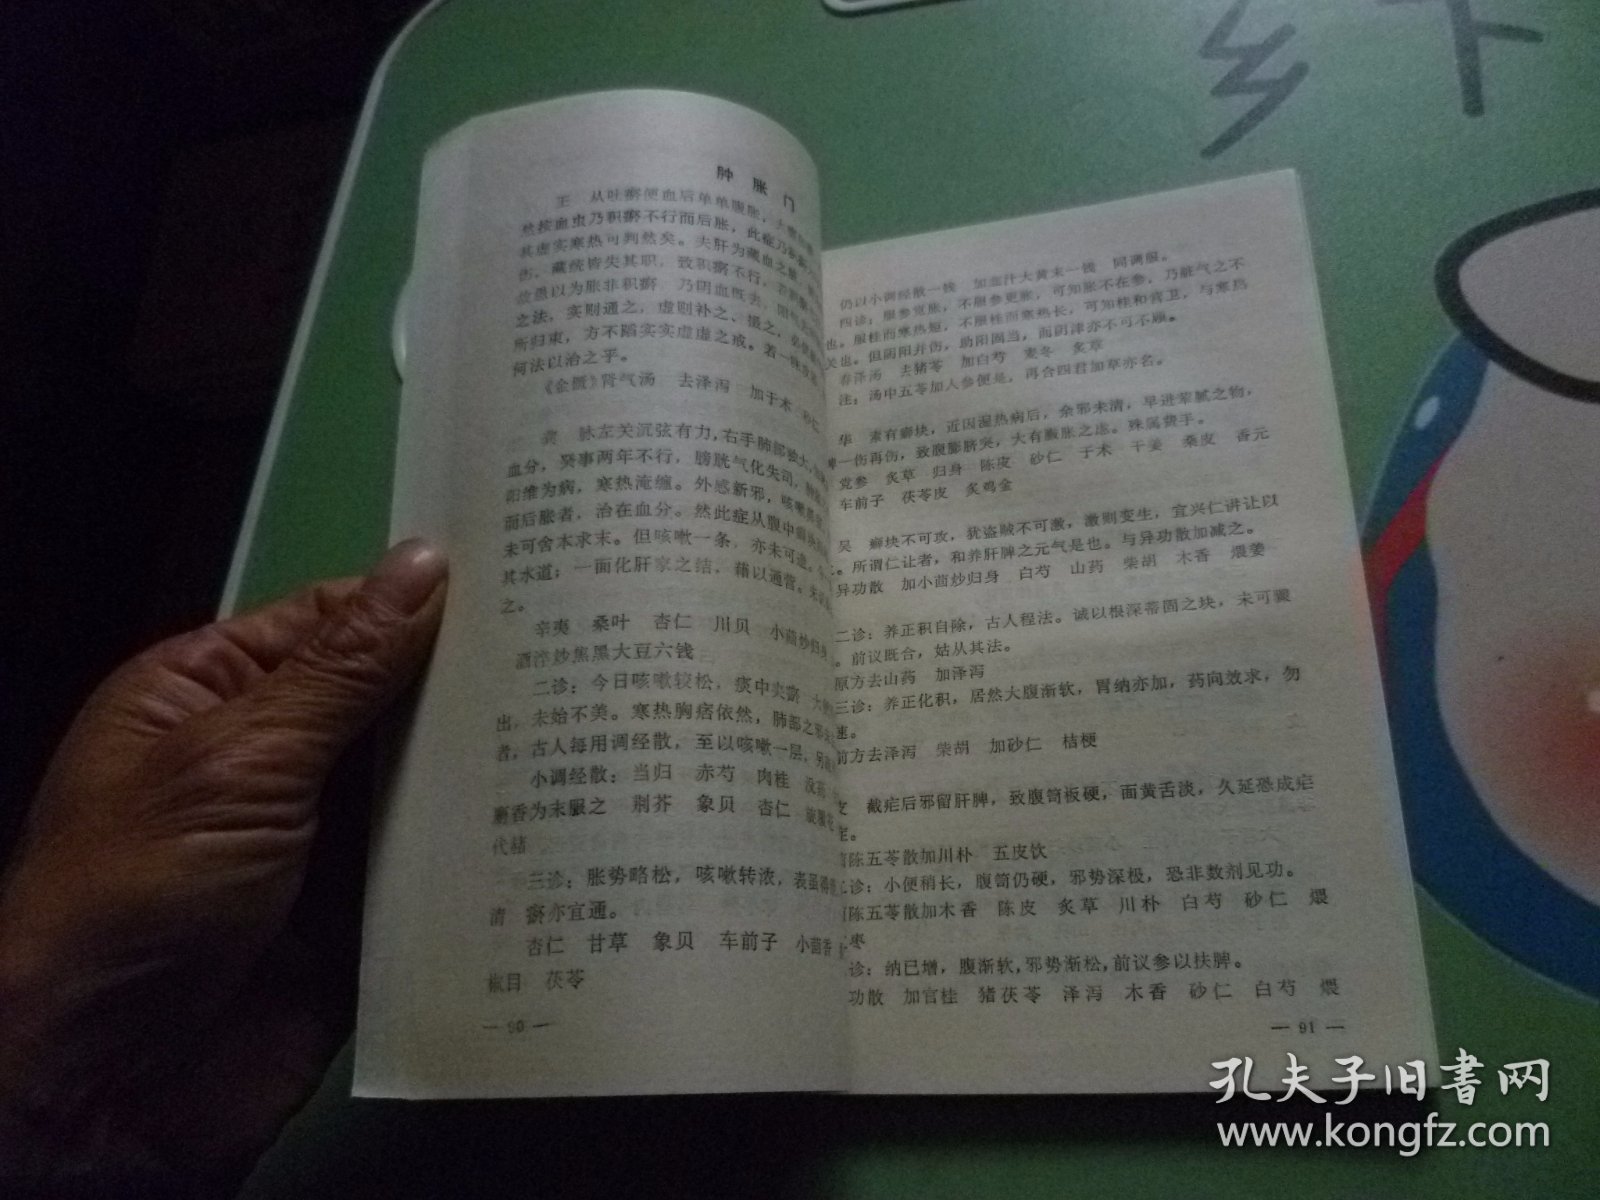 肿 胀 门
王 从吐瘀便血后单单腹胀，大
其虚实寒热可判然矣。夫肝为藏血之
伤，藏统皆失其职，致积瘀不行，
故愚以为胀非积瘀，乃阴血既去，阳气
之法，实则通之，虚则补之、摄之，
所归束，方不蹈实实虚虚之戒。若一
何法以治之乎。
《金匮》肾气汤 去泽泻 加于术 砂仁
龚 脉左关沉弦有力，右手肺部独大，
血分，癸事两年不行，膀胱气化失司，
阳维为病，寒热淹缠。外感新邪，咳嗽
而后胀者，治在血分。然此症从腹中癖块
未可舍本求末。但咳嗽一条，亦未可遗。
其水道；一面化肝家之结，藉以通营。
之。
辛夷 桑叶 杏仁 川贝 小茴炒归身
酒淬炒焦黑大豆六钱
二诊：今日咳嗽较松，痰中夹瘀
出，未始不美。寒热胸痞依然，肺部之邪
者，古人每用调经散，至以咳嗽一层，另
小调经散：当归 赤芍 肉桂 没药
麝香为末服之 荆芥 象贝 杏仁 旋覆花
代赭
三诊：胀势略松，咳嗽转浓，表虽
清 瘀亦宜通。
杏仁 甘草 象贝 车前子 小茴香
椒目 茯苓
— 90 —
仍以小调经散一钱 加血汁大黄末一钱 同调服。
四诊：服参宽胀，不服参更胀，可知胀不在参，乃脏气之不
也。服桂而寒热短，不服桂而寒热长，可知桂和营卫，与寒热
关也。但阴阳并伤，助阳固当，而阴津亦不可不顾。
春泽汤 去猪苓 加白芍 麦冬 炙草
注：汤中五苓加人参便是，再合四君加草亦名。
华 素有癖块，近因湿热病后，余邪未清，早进荤腻之物，
脾一伤再伤，致腹膨脐突，大有臌胀之虑。殊属费手。
党参 炙草 归身 陈皮 砂仁 于术 干姜 桑皮 香元
车前子 茯苓皮 炙鸡金
吴 癖块不可攻，犹盗贼不可激，激则变生，宜兴仁讲让以
。所谓仁让者，和养肝脾之元气是也。与异功散加减之。
异功散 加小茴炒归身 白芍 山药 柴胡 木香 煨姜
二诊：养正积自除，古人程法。诚以根深蒂固之块，未可骤
。前议既合，姑从其法。
原方去山药 加泽泻
三诊：养正化积，居然大腹渐软，胃纳亦加，药向效求，勿
速。
前方去泽泻 柴胡 加砂仁 桔梗
截疟后邪留肝脾，致腹笥板硬，面黄舌淡，久延恐成疟
陈五苓散加川朴 五皮饮
诊：小便稍长，腹笥仍硬，邪势深极，恐非数剂见功。
陈五苓散加木香 陈皮 炙草 川朴 白芍 砂仁 煨
枣
诊：纳已增，腹渐软，邪势渐松，前议参以扶脾。
功散 加官桂 猪茯苓 泽泻 木香 砂仁 白芍 煨
— 91 —
孔夫子旧书网
www.kongfz.com